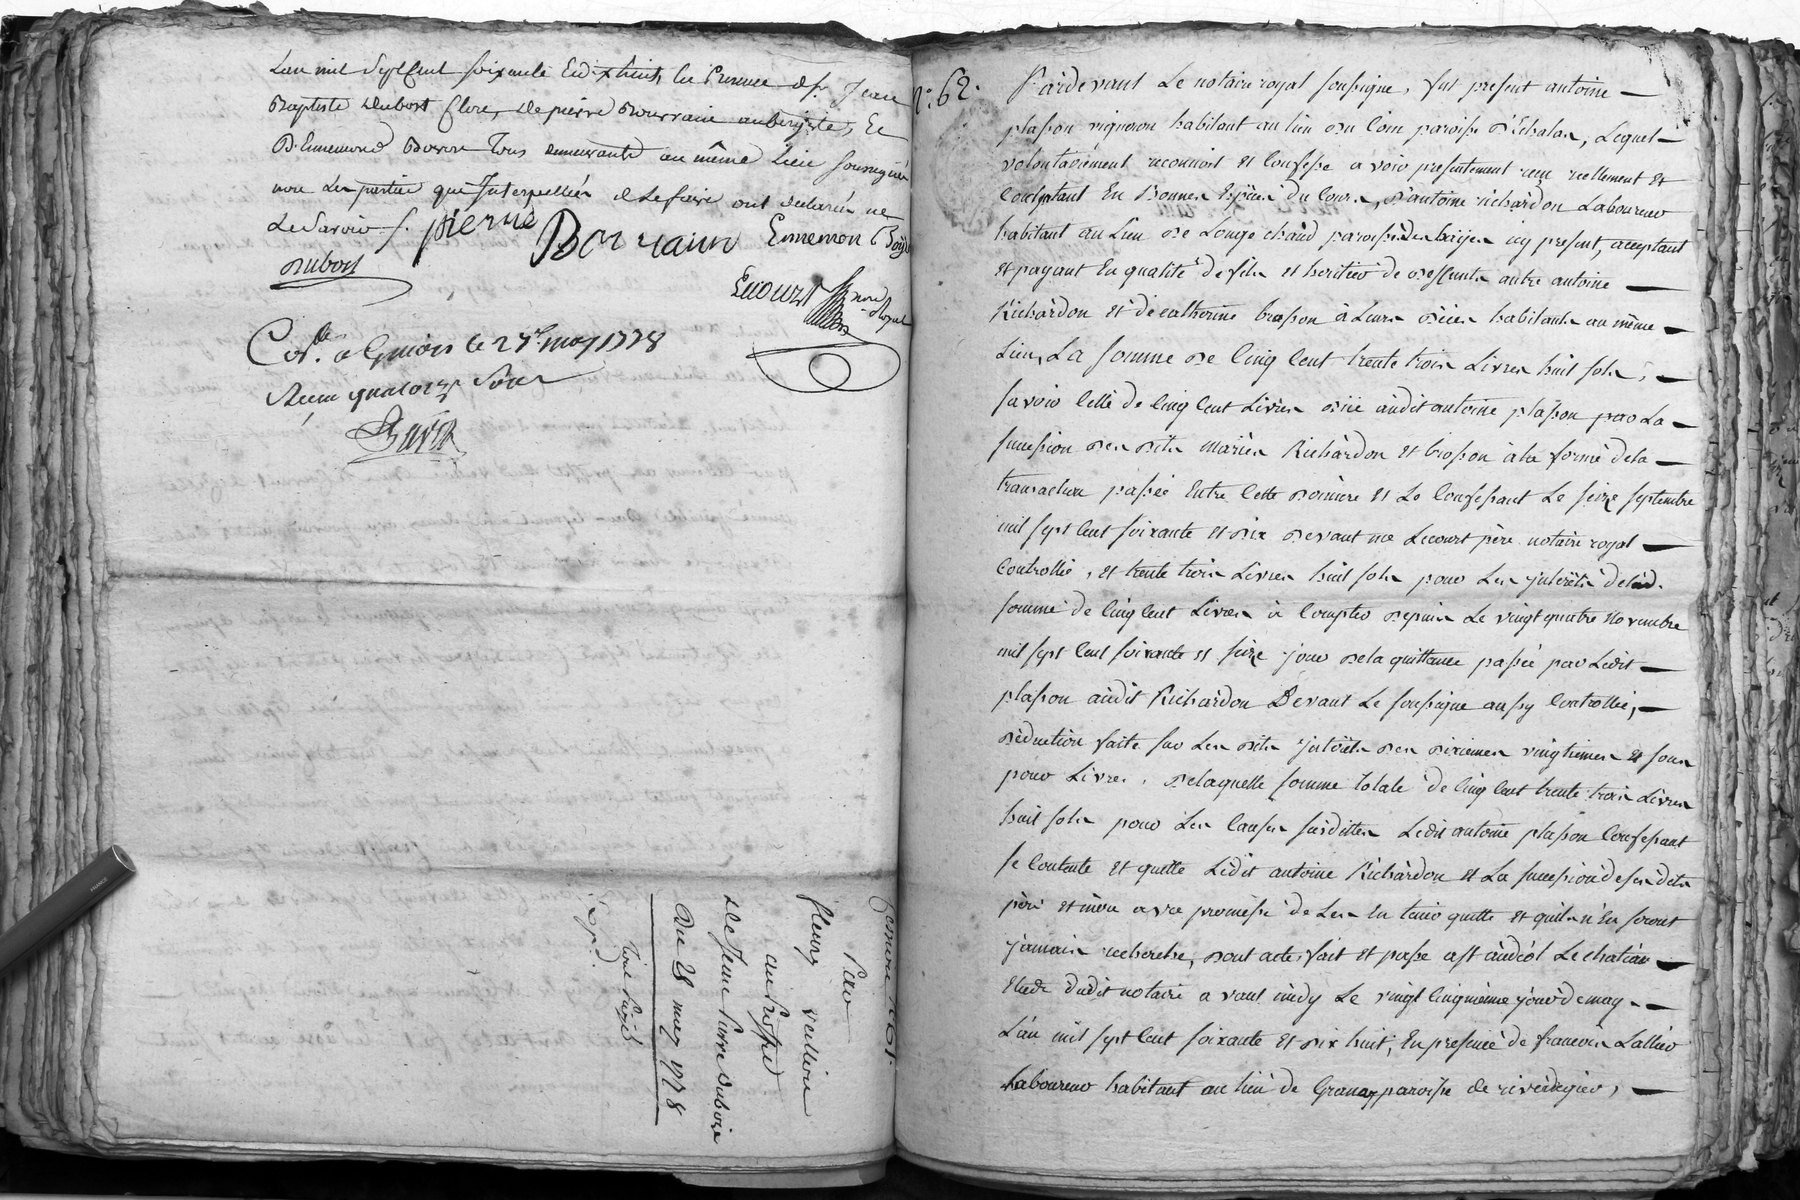 L'an mil Sept Cent soixante Et dix huit, En Presence de Sr. Jean
Baptiste Dubost Clerc, de pierre Bourrain aubergiste, Et
D'Ennemond Boyron Tous demeurants au même Lieu soussignés
non Les parties qui Interpellées de Le faire ont declarés ne
Le Savoir /.
pierre Borrain Ennemon Boy
Dubost
Lecourt
nore Royal
Corlle a Givors le 25 may 1778
Recu quatorze sous
fleury
au Proffit
de Jeane Pierre
Du 28 may 1778
Exp.d
No. 62.
Pardevant Le notaire royal soussigne, fut present antoine
plasson vigneron habitant au lieu du Coin paroisse d'Echalas, Lequel
volontairement reconnoit et confesse avoir presentement reçu reellement et
Comptant En Bonnes Espèces du Cours, d'antoine richardon Laboureur
habitant au Lieu de Longe chand paroisse des hayes icy present, acceptant
et payant En qualité de fils et heritier de deffunts autre antoine
Richardon et de catherine brosson à Leurs décés habitants au même
Lieu, La somme de Cinq Cent trente trois Livres huit sols,
savoir Celle de Cinq Cent Livres düe audit antoine plasson par La
succession des dits mariés Richardon et brosson à la forme de la
transaction passée Entre Cette derniere et Le Confessant Le seize septembre
mil sept Cent soixante et dix devant me Lecourt père notaire royal
Controllée, et trente trois Livres huit sols pour Les jnterêts de lad.
somme de Cinq Cent Livres à Compter depuis Le vingt quatre Novembre
mil sept Cent soixante et seize jour de la quittance passée par Ledit
plasson audit Richardon Devant Le soussigne aussy Controllée,
déduction faite sur Les dits jnterêts des dixiemes vingtiemes et sous
pour Livres. de laquelle somme totale de Cinq Cent trente trois Livres
huit sols pour Les causes susdittes Ledit antoine plasson Confessant
se Contente et quitte Ledit antoine Richardon et La succession de ses dits
père et mère avec promesse de Les En tenir quitte et quils n'En seront
jamais recherche, dont acte, fait et passe a st andéol Le chateau
Etude dudit notaire avant midy Le vingt Cinquième jour de may
L'an mil sept Cent soixante et dix huit, En presence de françois Lallier
Laboureur habitant au lieu de Granay paroisse de riverdegier,